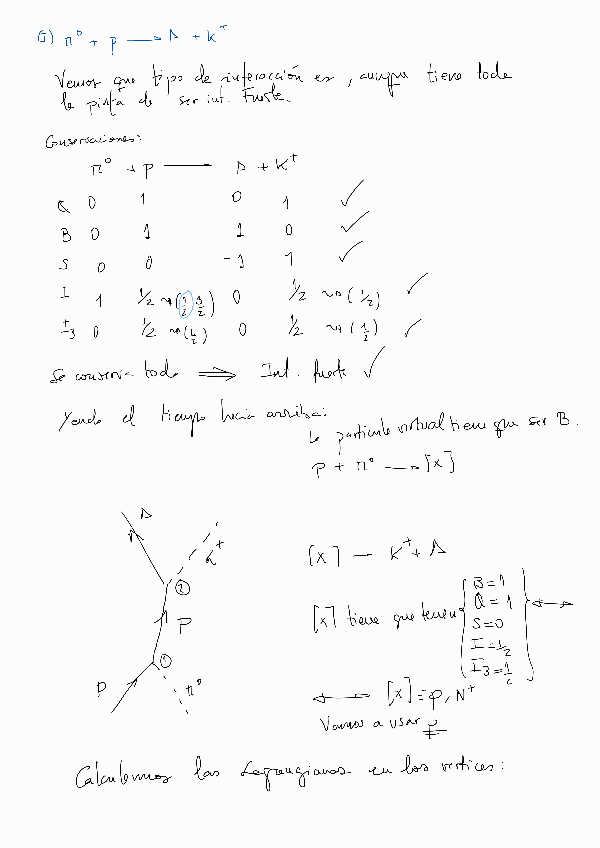 G) π⁰ + p ⟶ Λ + K⁺
Vemos que tipo de interacción es, aunque tiene toda
la pinta de ser int. Fuerte.
Conservaciones:
π⁰ + p —— Λ + K⁺
Q 0 1 0 1 ✓
B 0 1 1 0 ✓
S 0 0 -1 1 ✓
I 1 1/2 ⇝ (1/2 3/2) 0 1/2 ⇝ (1/2) ✓
I₃ 0 1/2 ⇝ (1/2) 0 1/2 ⇝ (1/2) ✓
Se conserva todo ⟹ Int. fuerte ✓
Yendo el tiempo hacia arriba:
La particula virtual tiene que ser B.
P + π⁰ ⟶ [X]
Λ
K⁺
[X] — K⁺ + Λ
②
P
[X] tiene que tener { B=1
Q=1
S=0
I=1/2
I₃=1/2 } ⟷
①
P
π⁰
⟷ [X] = p, N⁺
Vamos a usar p
Calculemos los Lagrangianos en los vertices: